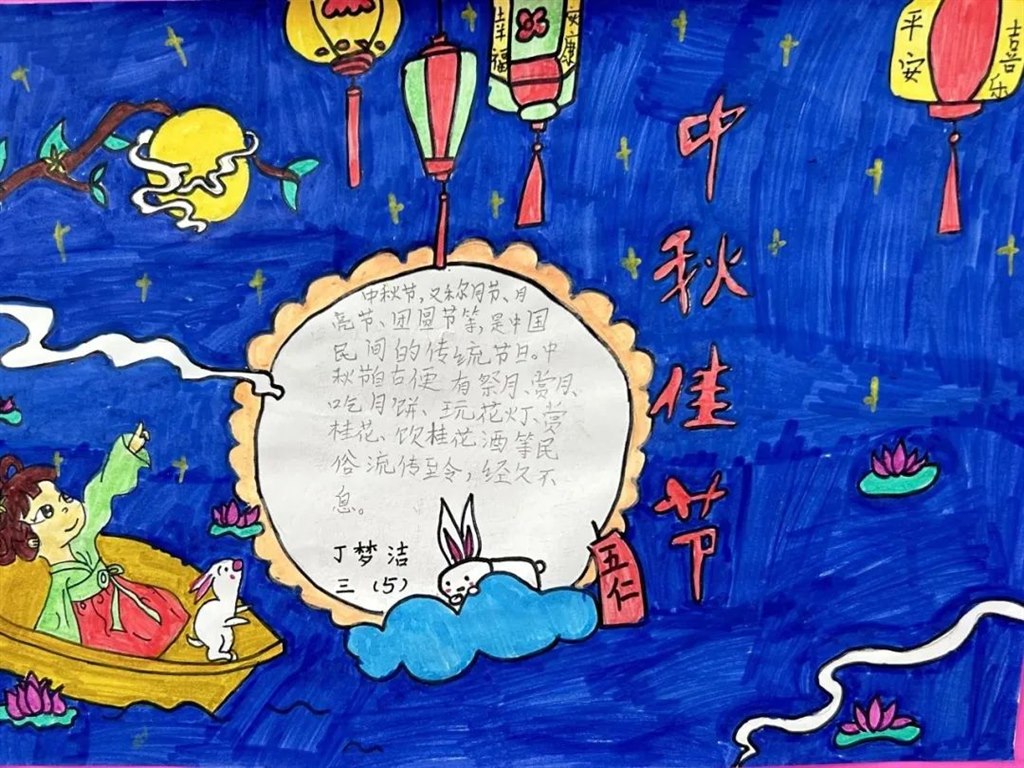 幸福
安康
平安
喜乐
中秋佳节
中秋节，又称月节、月
亮节、团圆节等，是中国
民间的传统节旦。中
秋节自古便有祭月、赏月、
吃月饼、玩花灯、赏
桂花、饮桂花酒等民
俗流传至今，经久不
息。
丁梦洁
三（5）
五仁